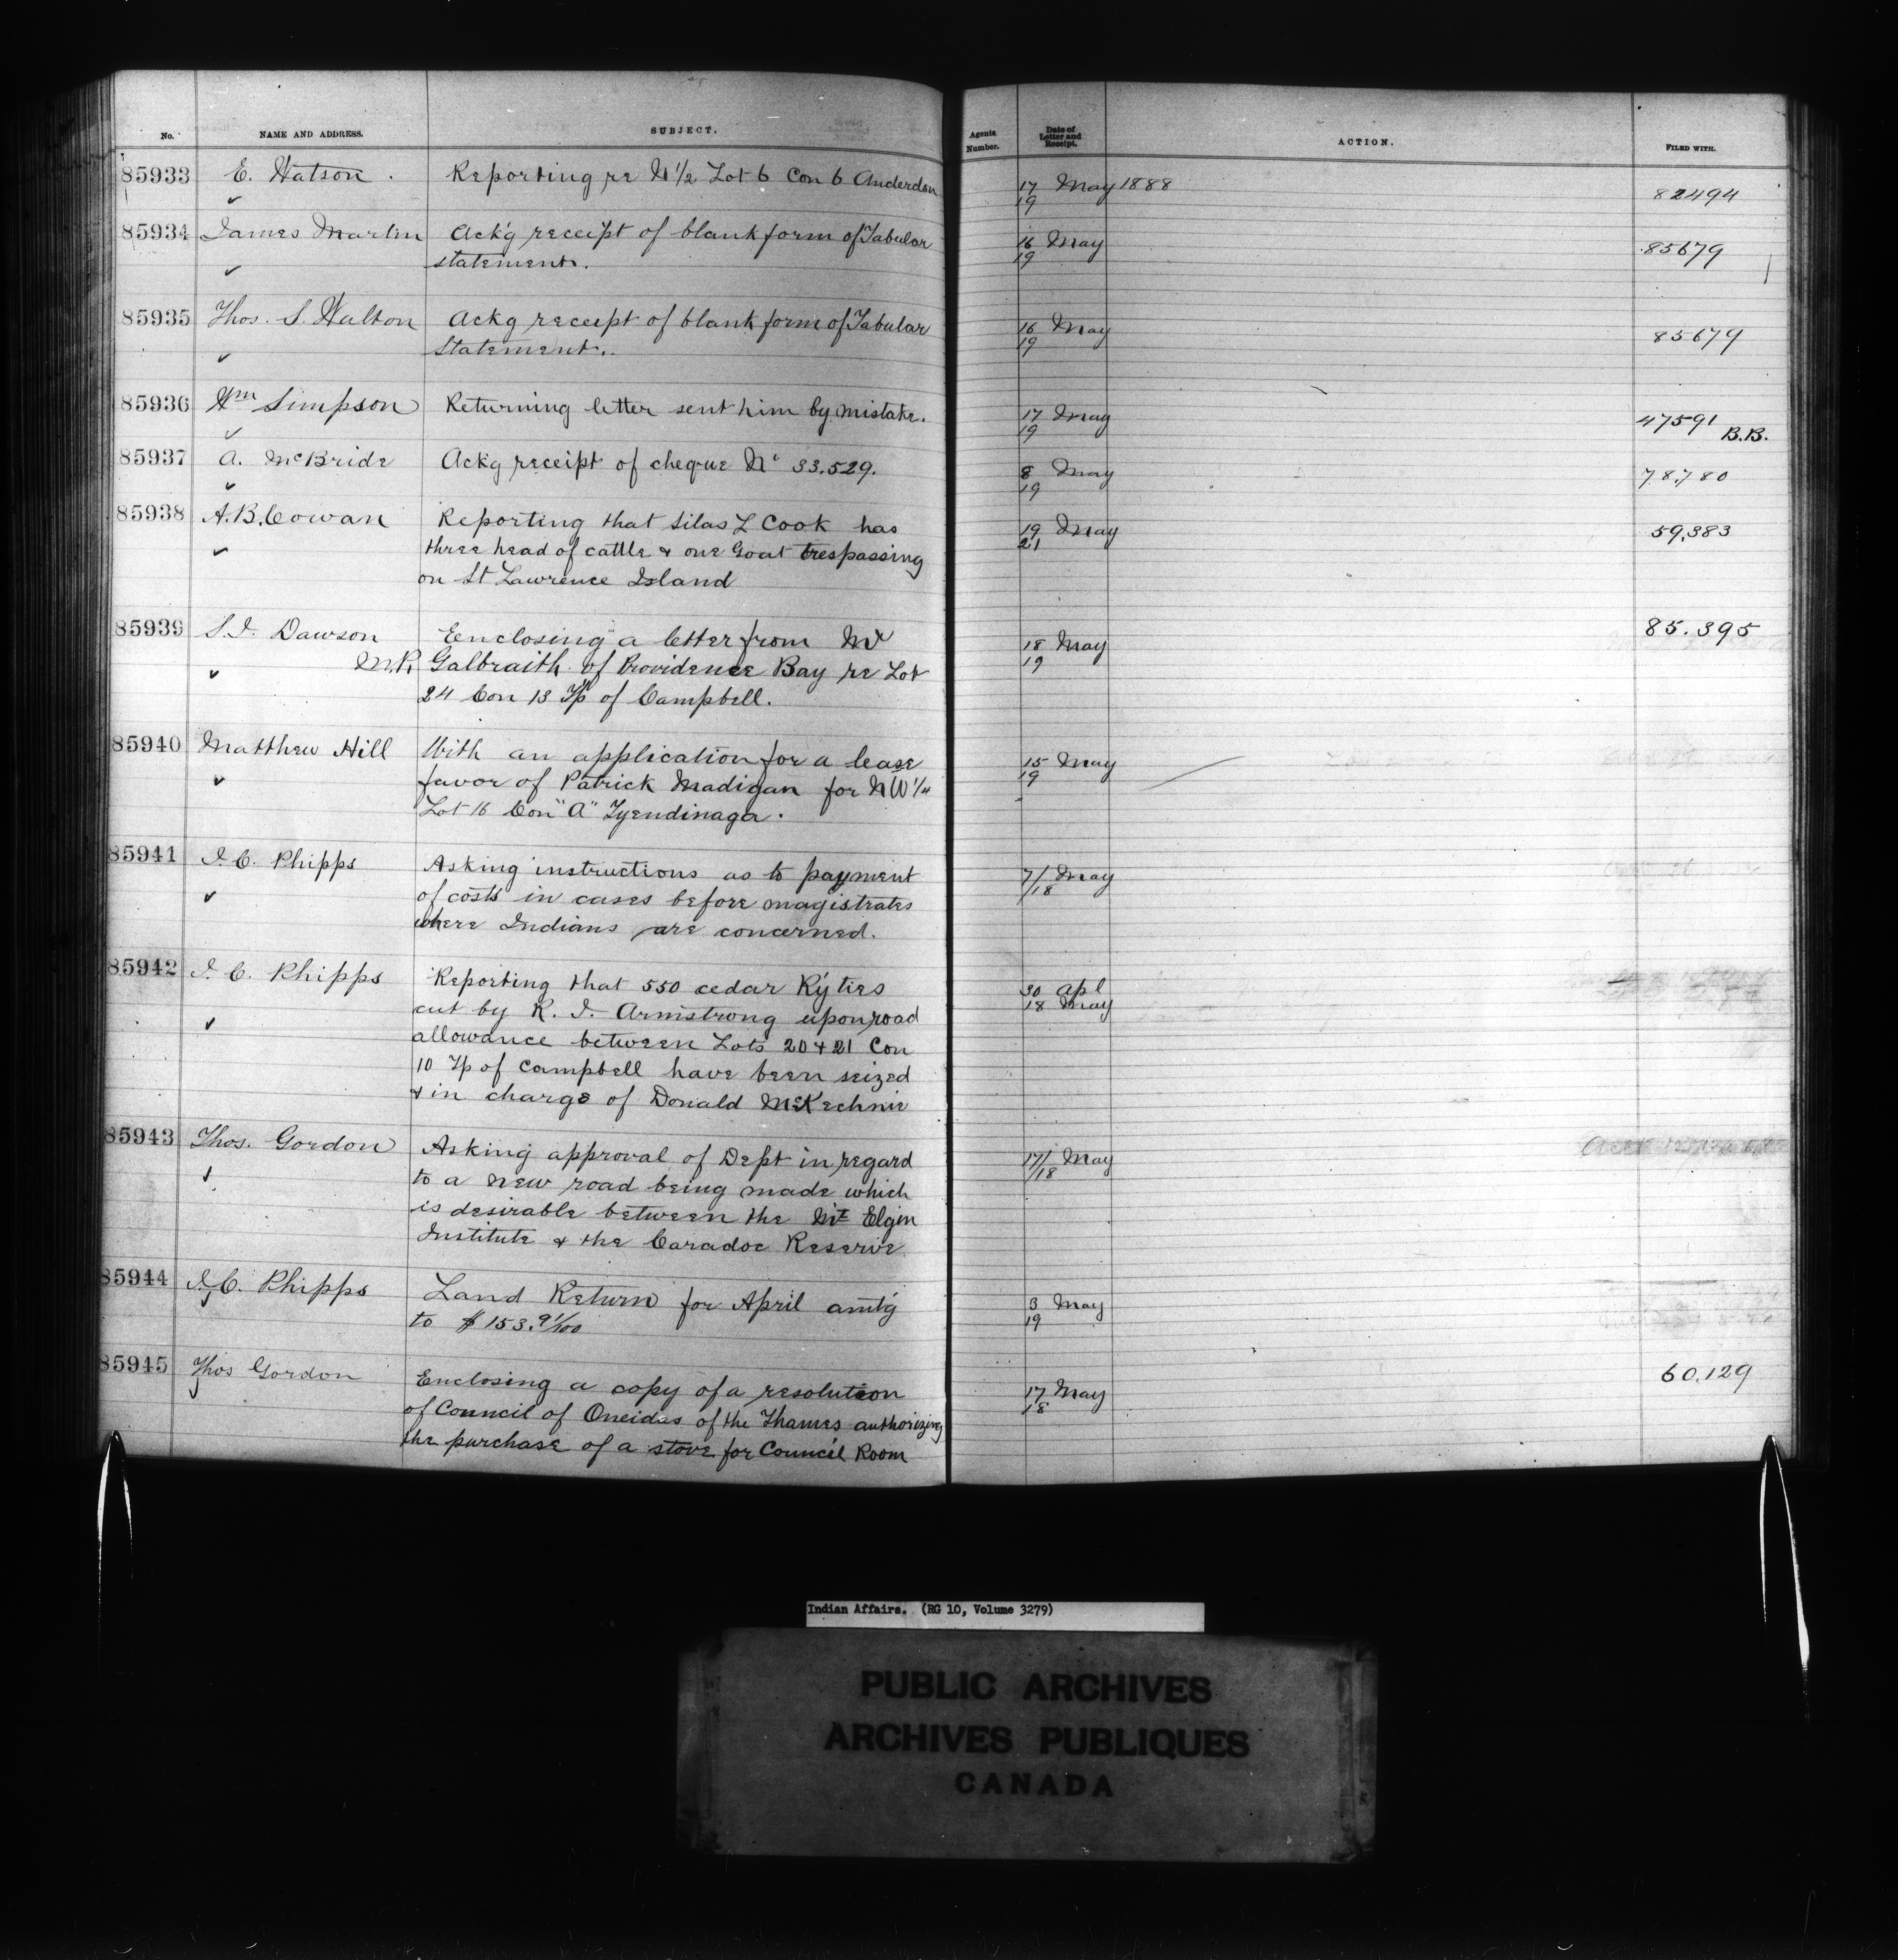 No. NAME AND ADDRESS. SUBJECT. Agents Number. Date of Letter and Receipt. ACTION. FILED WITH.
85933 E. Watson. Reporting re N 1/2 Lot 6 Con 6 Anderdon 17 May 1888 82494
19
85934 James Martin Ack'g receipt of blank form of Tabular 16 May 85679
statement. 19
85935 Thos. S. Walton Ackg receipt of blank form of Tabular 16 May 85679
Statement. 19
85936 Wm Simpson Returning letter sent him by mistake. 17 May 47591
19 B.B.
85937 A. McBride Ackg receipt of cheque No 33.529. 8 May 78780
19
85938 A.B. Cowan Reporting that Silas L Cook has 19 May 59,383
three head of cattle & one Goat trespassing 21
on St Lawrence Island
85939 S.J. Dawson Enclosing a letter from Mr 18 May 85.395
M.P. Galbraith of Providence Bay re Lot 19
24 Con 13 Tp of Campbell.
85940 Matthew Hill With an application for a lease 15 May
favor of Patrick Madigan for N W 1/4 19
Lot 16 Con "A" Tyendinaga.
85941 J.C. Phipps Asking instructions as to payment 7/ May
of costs in cases before magistrates /18
where Indians are concerned.
85942 J.C. Phipps Reporting that 550 cedar Ry ties 30 Apl
cut by R. J. Armstrong upon road 18 May
allowance between Lots 20 & 21 Con
10 Tp of Campbell have been seized
& in charge of Donald McKechnie
85943 Thos. Gordon Asking approval of Dept in regard 17/ May
to a new road being made which /18
is desirable between the Mt Elgin
Institute & the Caradoc Reserve
85944 J.C. Phipps Land Return for April amt'g 3 May
to $153.91/100 19
85945 Thos Gordon Enclosing a copy of a resolution 17 May 60.129
of Council of Oneidas of the Thames authorizing 18
the purchase of a stove for Council Room
Indian Affairs. (RG 10, Volume 3279)
PUBLIC ARCHIVES
ARCHIVES PUBLIQUES
CANADA